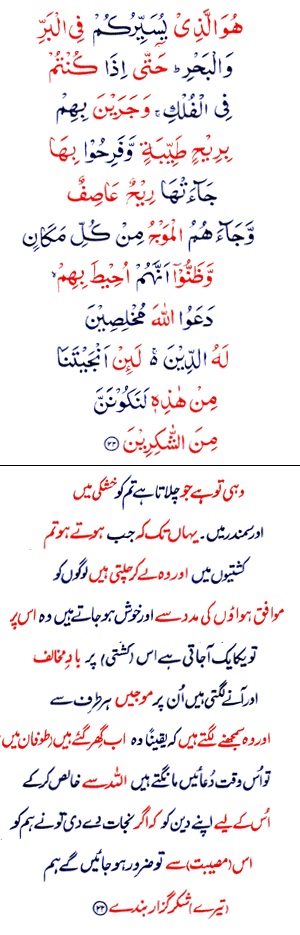 هُوَ الَّذِیْ یُسَیِّرُكُمْ فِی الْبَرِّ
وَالْبَحْرِ ؕ حَتّٰۤی اِذَا كُنْتُمْ
فِی الْفُلْكِ ۚ وَجَرَیْنَ بِهِمْ
بِرِیْحٍ طَیِّبَةٍ وَّفَرِحُوْا بِهَا
جَآءَتْهَا رِیْحٌ عَاصِفٌ
وَّجَآءَهُمُ الْمَوْجُ مِنْ كُلِّ مَكَانٍ
وَّظَنُّوْۤا اَنَّهُمْ اُحِیْطَ بِهِمْ ۙ
دَعَوُا اللّٰهَ مُخْلِصِیْنَ
لَهُ الدِّیْنَ ۚ۬ لَئِنْ اَنْجَیْتَنَا
مِنْ هٰذِهٖ لَنَكُوْنَنَّ
مِنَ الشّٰكِرِیْنَ ۲۲
وہی تو ہے جو چلاتا ہے تم کو خشکی میں
اور سمندر میں۔ یہاں تک کہ جب ہوتے ہو تم
کشتیوں میں اور وہ لے کر چلتی ہیں لوگوں کو
موافق ہواؤں کی مدد سے اور خوش ہو جاتے ہیں وہ اس پر
تو یکایک آ جاتی ہے اس (کشتی) پر بادِ مخالف
اور آنے لگتی ہیں اُن پر موجیں ہر طرف سے
اور وہ سمجھنے لگتے ہیں کہ یقینًا وہ اب گھِر گئے ہیں (طوفان میں
تو اُس وقت دُعائیں مانگتے ہیں اللہ سے خالص کر کے
اُس کے لیے اپنے دین کو کہ اگر نجات دے دی تو نے ہم کو
اس (مصیبت) سے تو ضرور ہو جائیں گے ہم
(تیرے) شکر گزار بندے ۲۲